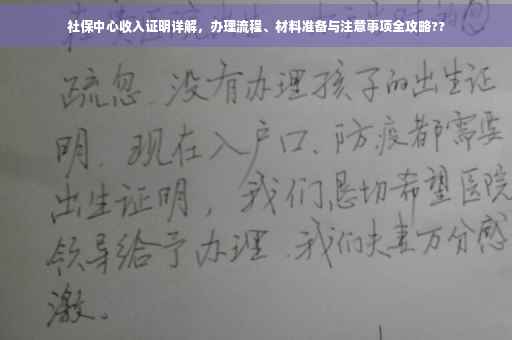 社保中心收入证明详解，办理流程、材料准备与注意事项全攻略??
疏忽、没有办理孩子的出生证
明、现在入户口、防疫都需要
出生证明，我们恳切希望医院
领导给予办理、我们夫妻万分感
激。